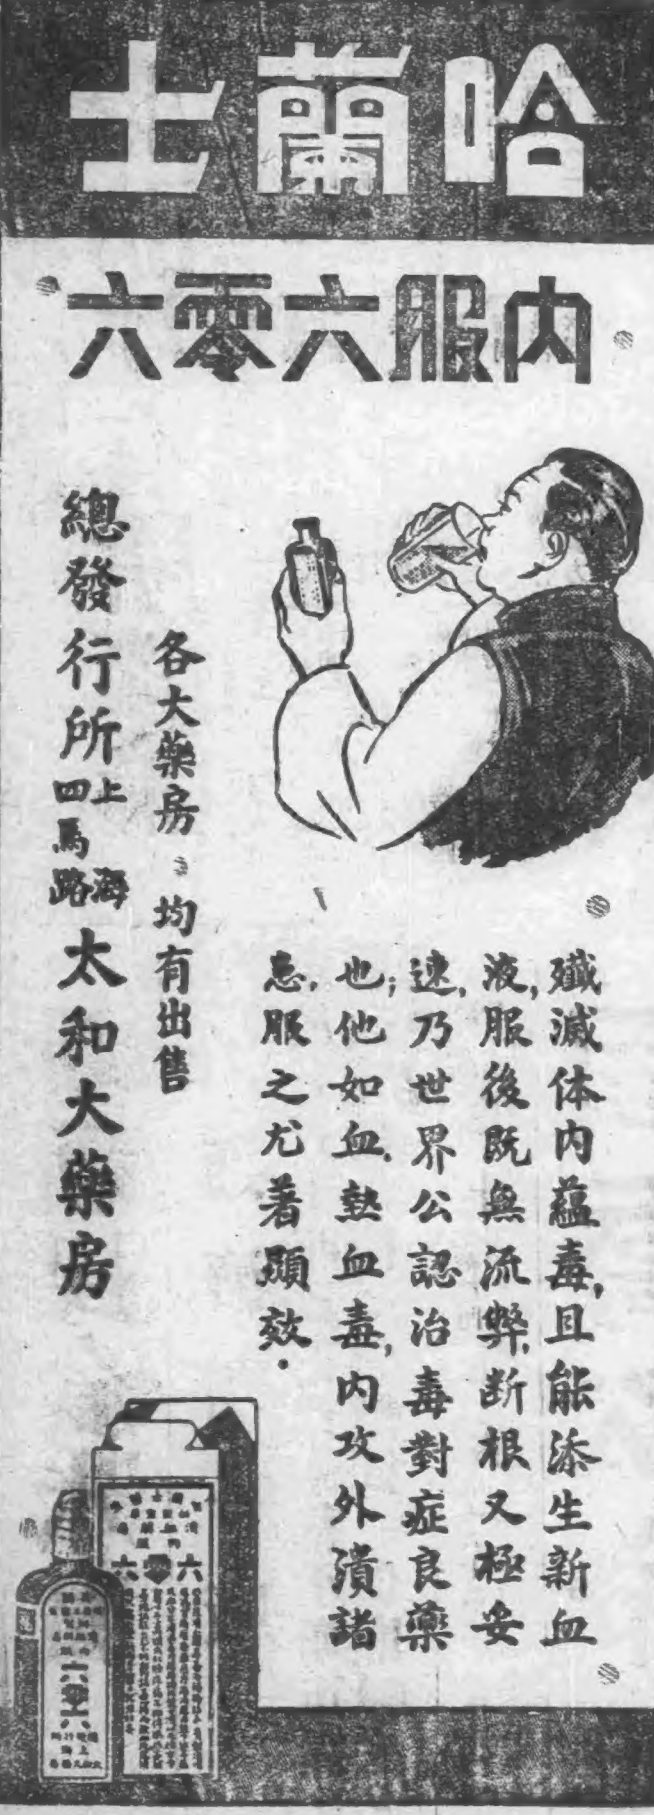 哈蘭士
內服六零六
殲滅体內蘊毒,且能添生新血
液,服後既無流弊,断根又極妥
速,乃世界公認治毒對症良藥
也;他如血熱血毒,內攻外潰諸
患,服之尤著顯效.
各大藥房。均有出售
總發行所上海四馬路太和大藥房
六零六
六零六